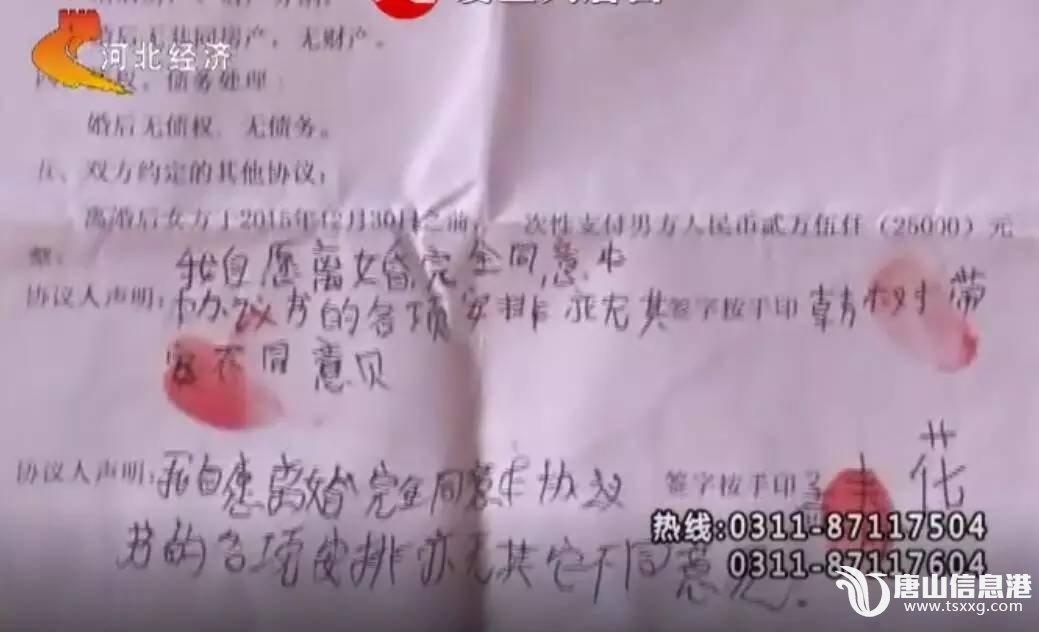 婚后无共同房产，无财产。
河北经济
权、债务处理：
婚后无债权、无债务。
五、双方约定的其他协议：
离婚后女方于2015年12月30日之前，一次性支付男方人民币贰万伍仟（25000）元
整。
我自愿离婚完全同意本
协议人声明：协议书的各项安排亦无其 签字按手印
它不同意见
协议人声明：我自愿离婚完全同意本协议 签字按手印 花
书的各项安排亦无其它不同意见.
热线:0311-87117504
0311-87117604
唐山信息港
www.tsxxg.com